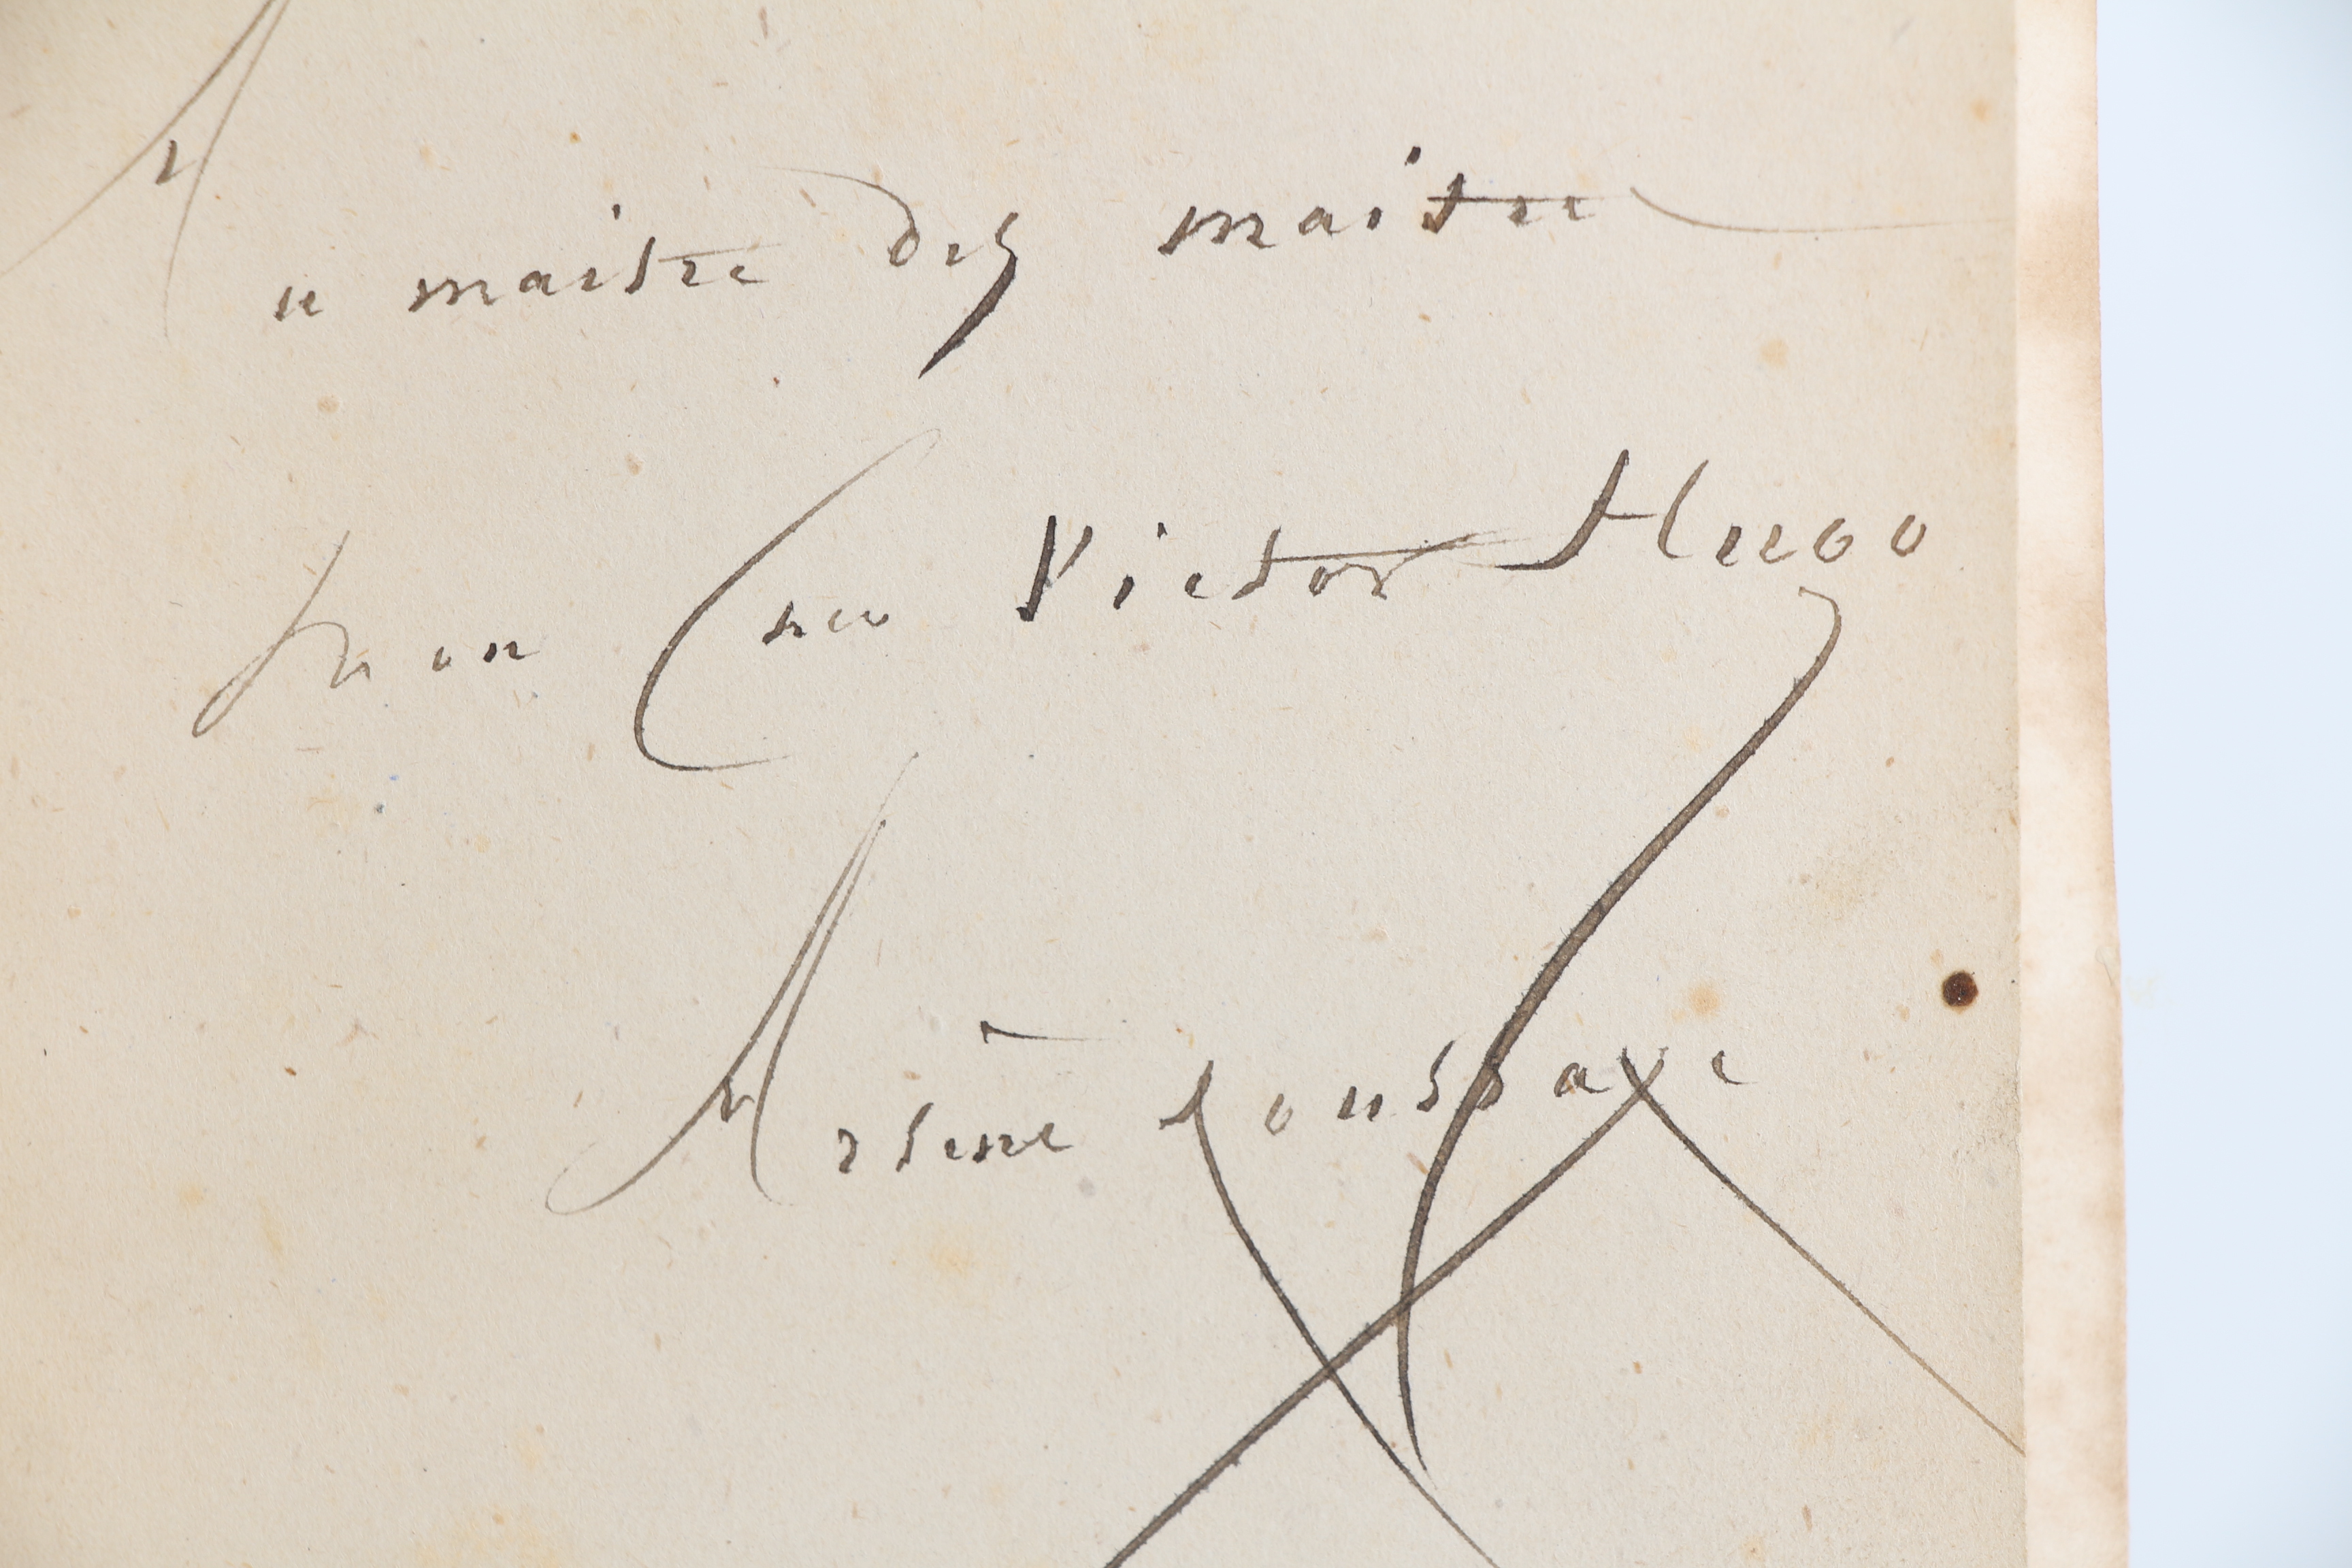 Au maitre des maitres
Mon Cher Victor Hugo
Arsène Houssaye